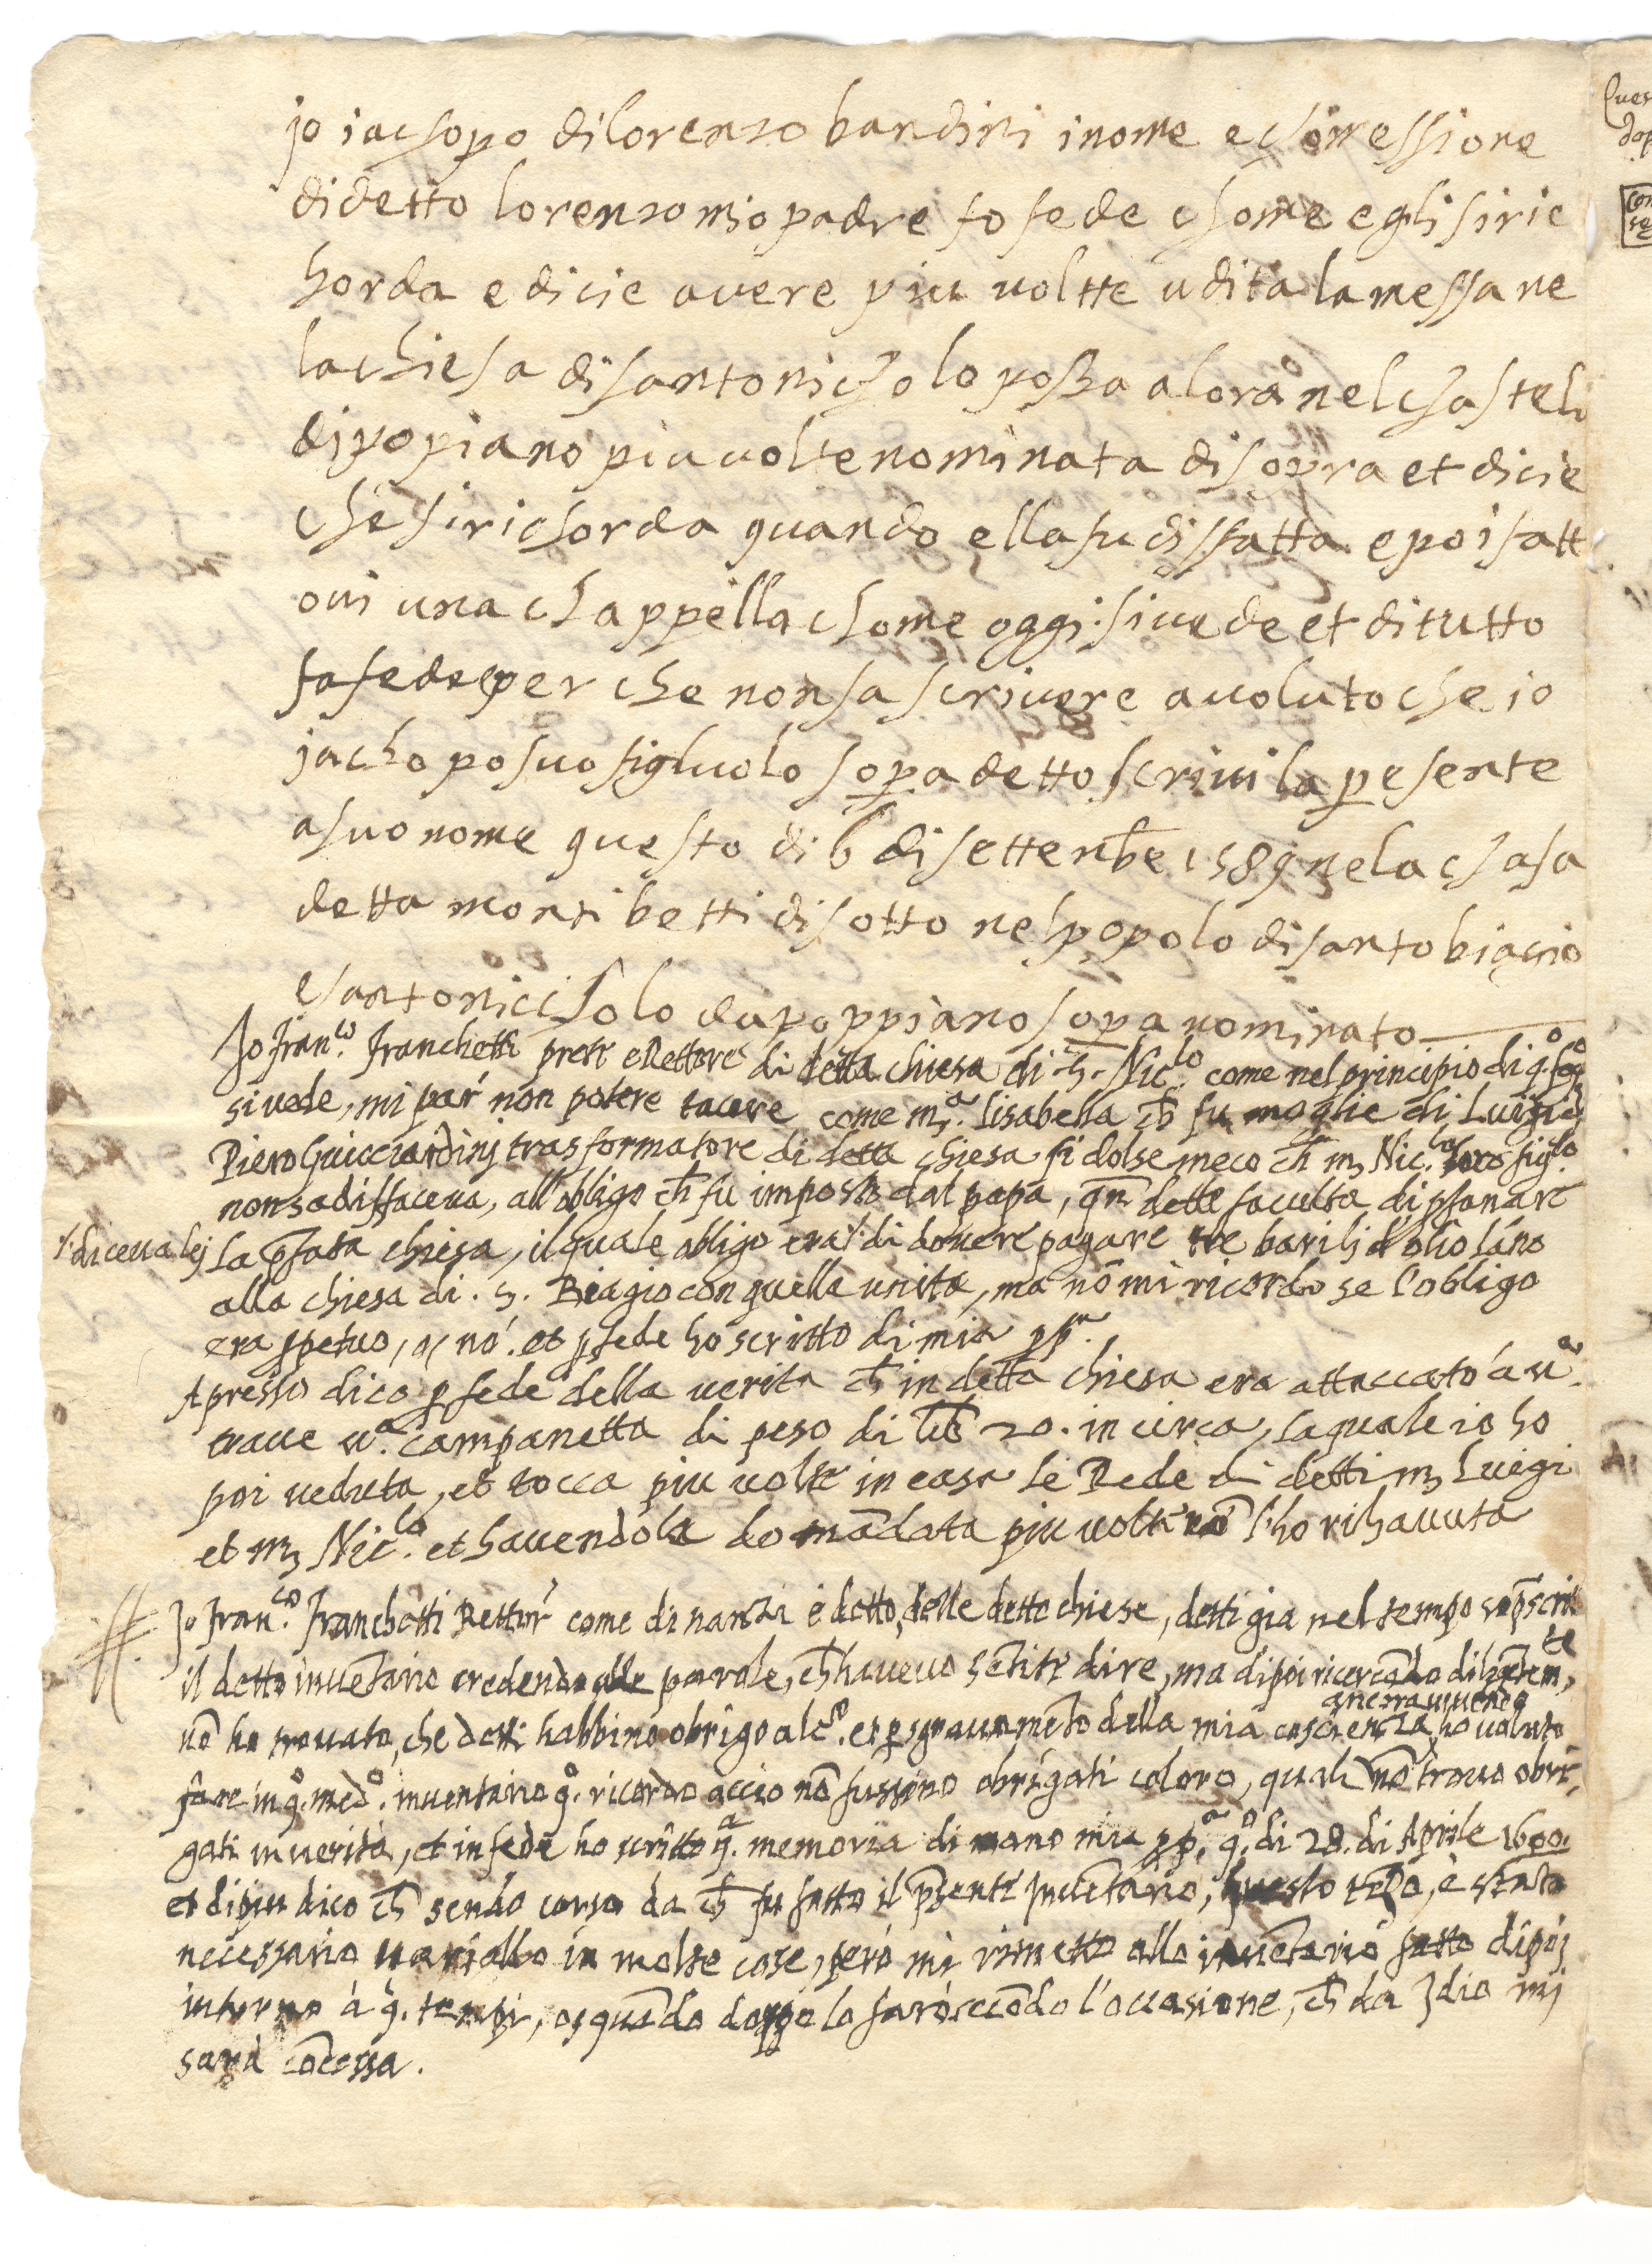 jo iachopo di lorenzo bandini i nome e chomessione
di detto lorenzo mio padre fo fede chome egli si ric
horda e dicie avere piu voltte udita la messa ne
la chiesa di santo nicholo posta alora nel chastelo
di popiano piu volte nominata di sopra et dicie
che si richorda quando ella fu disfatta e poi fatt
ovi una chappella chome oggi si vede et di tutto
fa fede e per che non sa scrivere a voluto che io
jachopo suo figluolo sopa detto scrivi la pesente
a suo nome questo di 6 di settenbe 1589 ne la chasa
detta monti betti di sotto nel popolo di santo biagio
e santo nicciholo da poppiano sopa nominato
Jo Fran.co Franchetti prete e Rettore di detta chiesa di S. Nic.lo come nel principio di q.o fog.o
si vede, mi par non potere tacere come m.a Lisabella ch fu moglie di Luigi di
Piero Guicciardinj trasformatore di detta chiesa si dolse meco ch m Nic.lo loro figlo.
non sadisffaceva, all obligo ch fu imposto dal papa, qn dette faculta di pfanare
/. diceva lej
la pfata chiesa, il quale obligo era /. di dovere pagare tre barili d'olio l'ano
alla chiesa di .S. Biagio con quella unita, ma nō mi ricordo se l'obligo
era ppetuo, o no. et p fede ho scritto di mia pp.a
Apresso dico p fede della verita ch in detta chiesa era attaccato à u.a
trave u.a campanetta di peso di lib 20. in circa, la quale io ho
poi veduta, et tocca piu volte in casa le Rede di detti m Luigi
et m Nic.lo et havendola domādata piu volte nō l'ho rihavuta
Jo Fran.co Franchetti Rettor come dinanzi è detto, delle dette chiese, detti gia nel tempo sopscritto
il detto inuētario credendo alle parole, ch havevo sētite dire, ma dipoi ricercādo diligētem.te,
nō ho trovato, che detti habbino obrigo alc.o et p sgravamēto della mia coscienza, ancora vivendo ho voluto
fare in q.o med.o inventario q.o ricordo accio nō fussino obrigati coloro, quali nō trovo obri-
gati in verità, et in fede ho scritto q.a memoria di mano mia pp.a q.o di 28. di Aprile 1600.
et di piu dico ch sendo corso da ch fu fatto il psente inuētario, questo tēpo, è stato
necessario variallo in molte cose, però mi rimetto allo inuētario fatto dipoj
intorno à q. tempi, o quādo doppo lo farò secōdo l'occasione, ch da Jdio mj
sarà cōcessa.